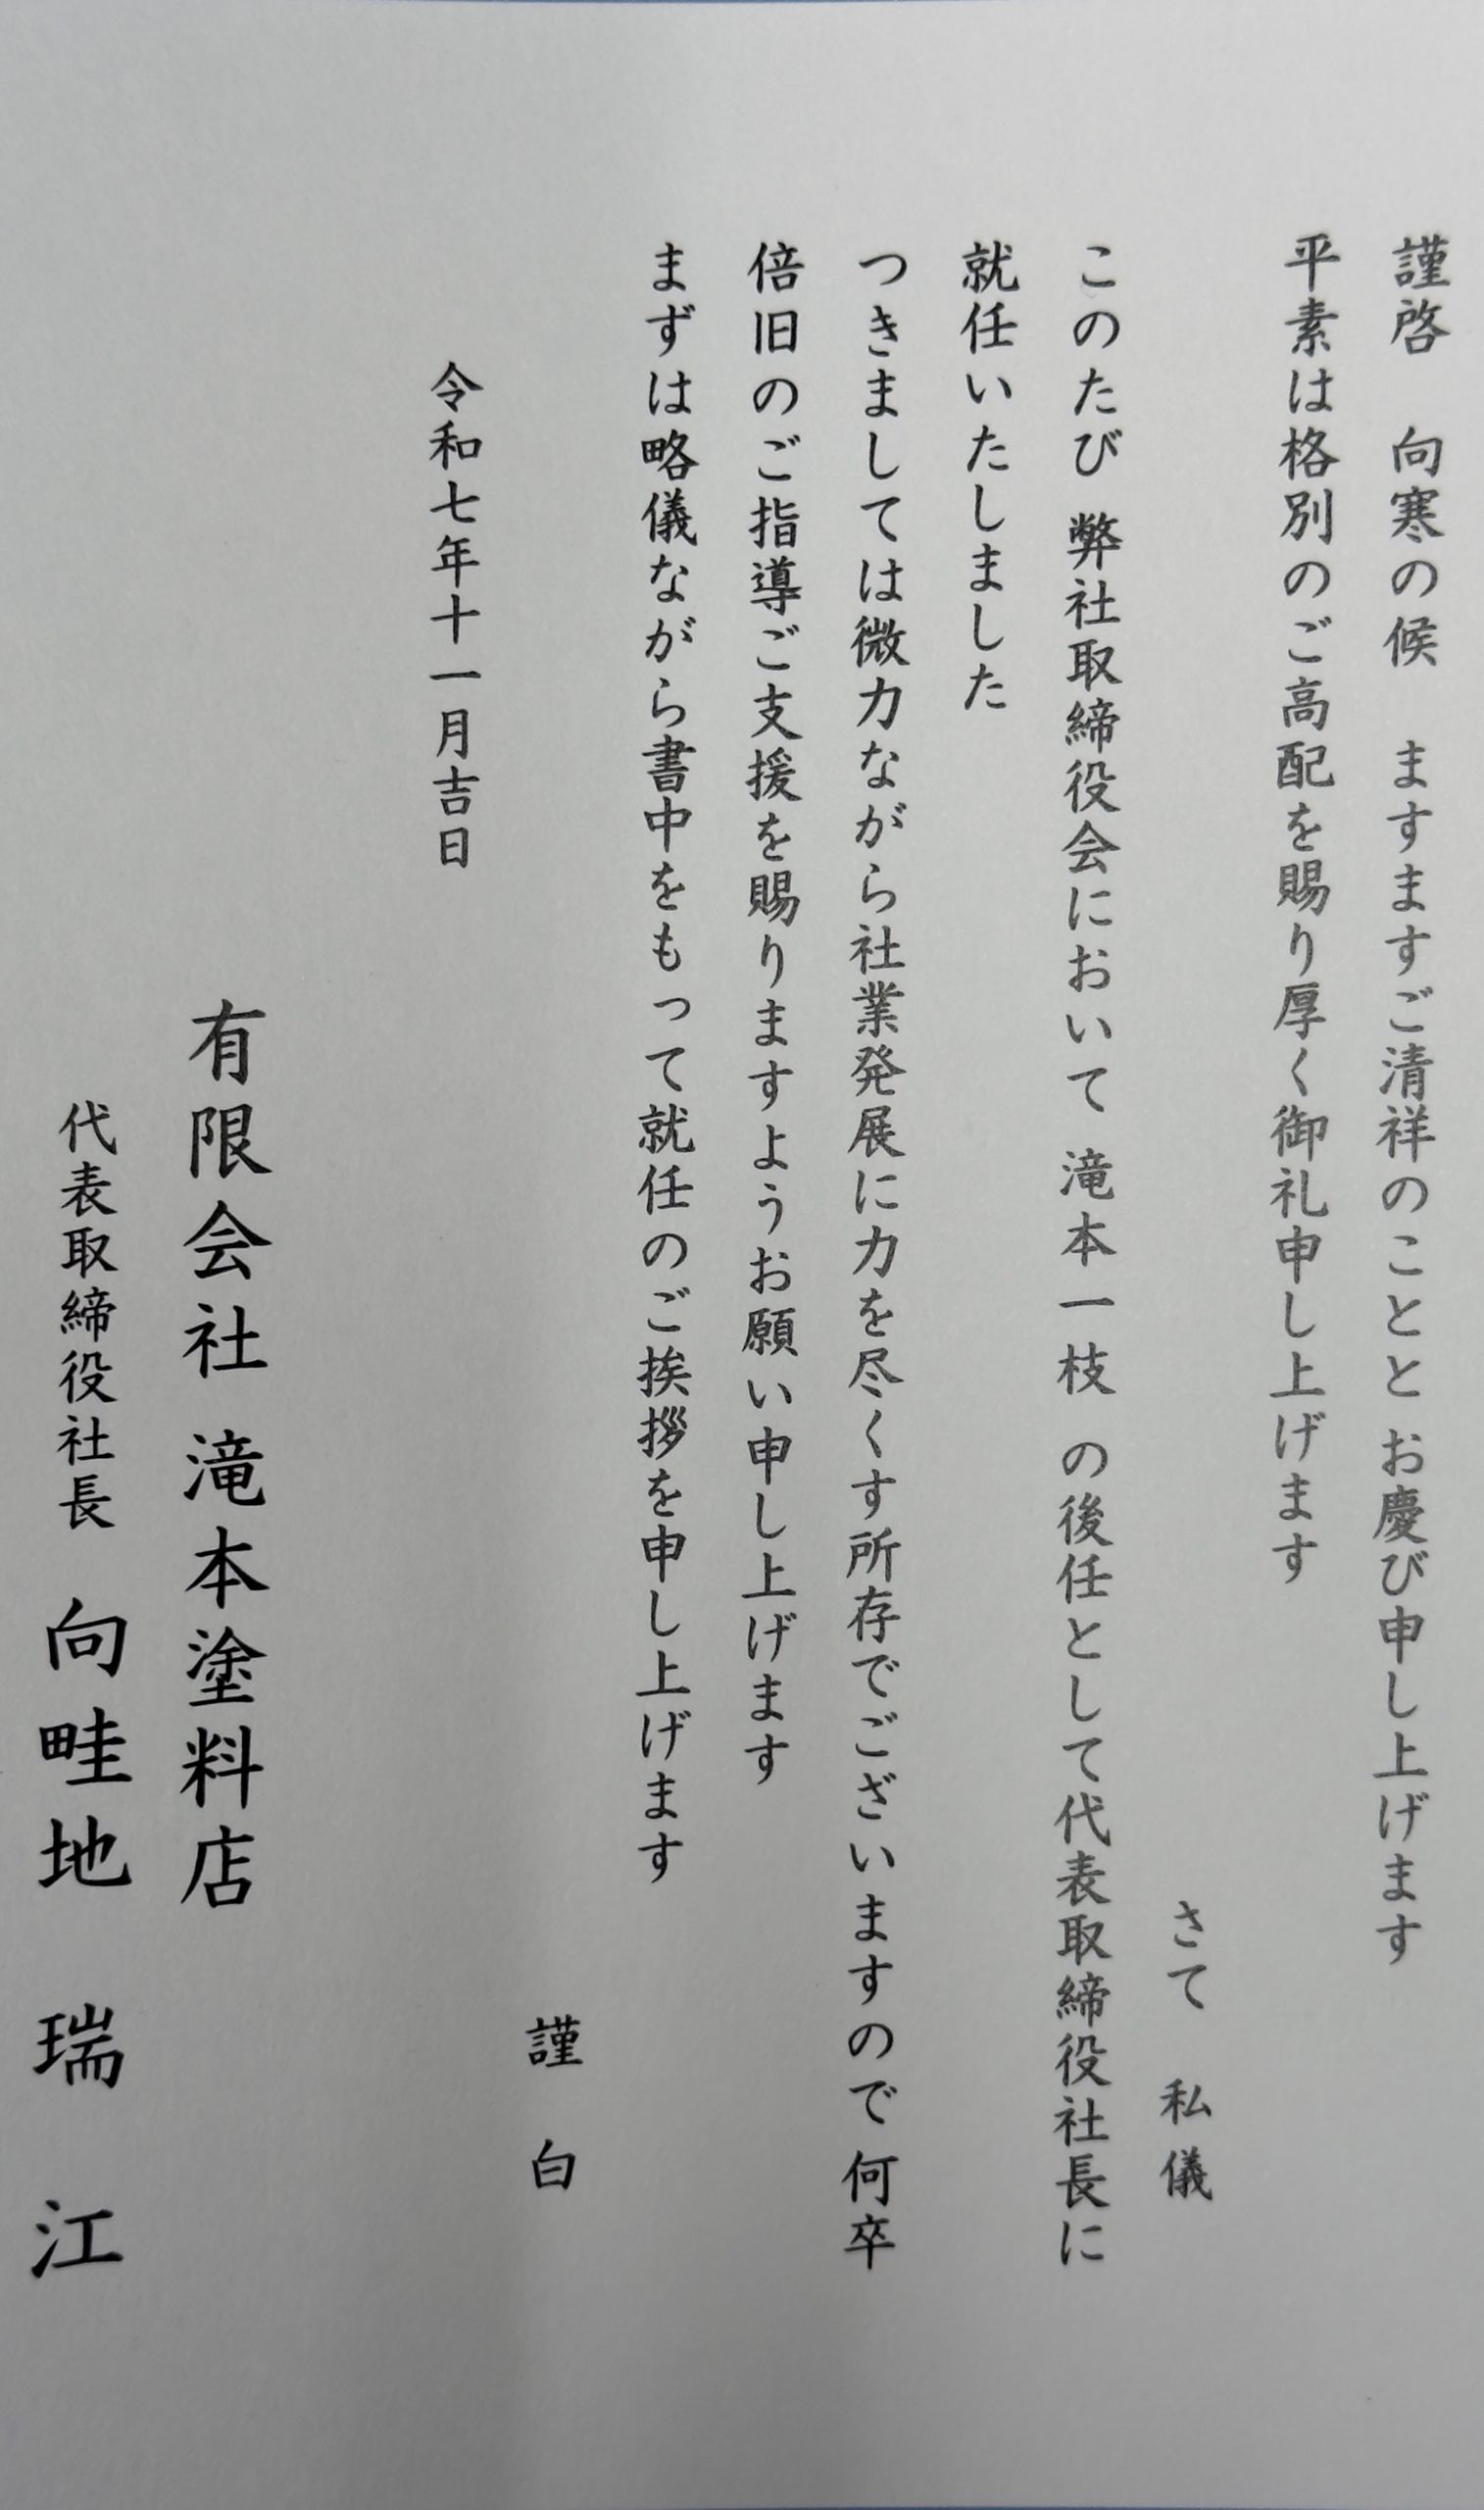 謹啓　向寒の候　ますますご清祥のことと お慶び申し上げます
平素は格別のご高配を賜り厚く御礼申し上げます
さて　私儀
このたび 弊社取締役会において 滝本一枝 の後任として代表取締役社長に
就任いたしました
つきましては微力ながら社業発展に力を尽くす所存でございますので 何卒
倍旧のご指導ご支援を賜りますようお願い申し上げます
まずは略儀ながら書中をもって就任のご挨拶を申し上げます
謹　白
令和七年十一月吉日
有限会社 滝本塗料店
代表取締役社長　向畦地　瑞　江